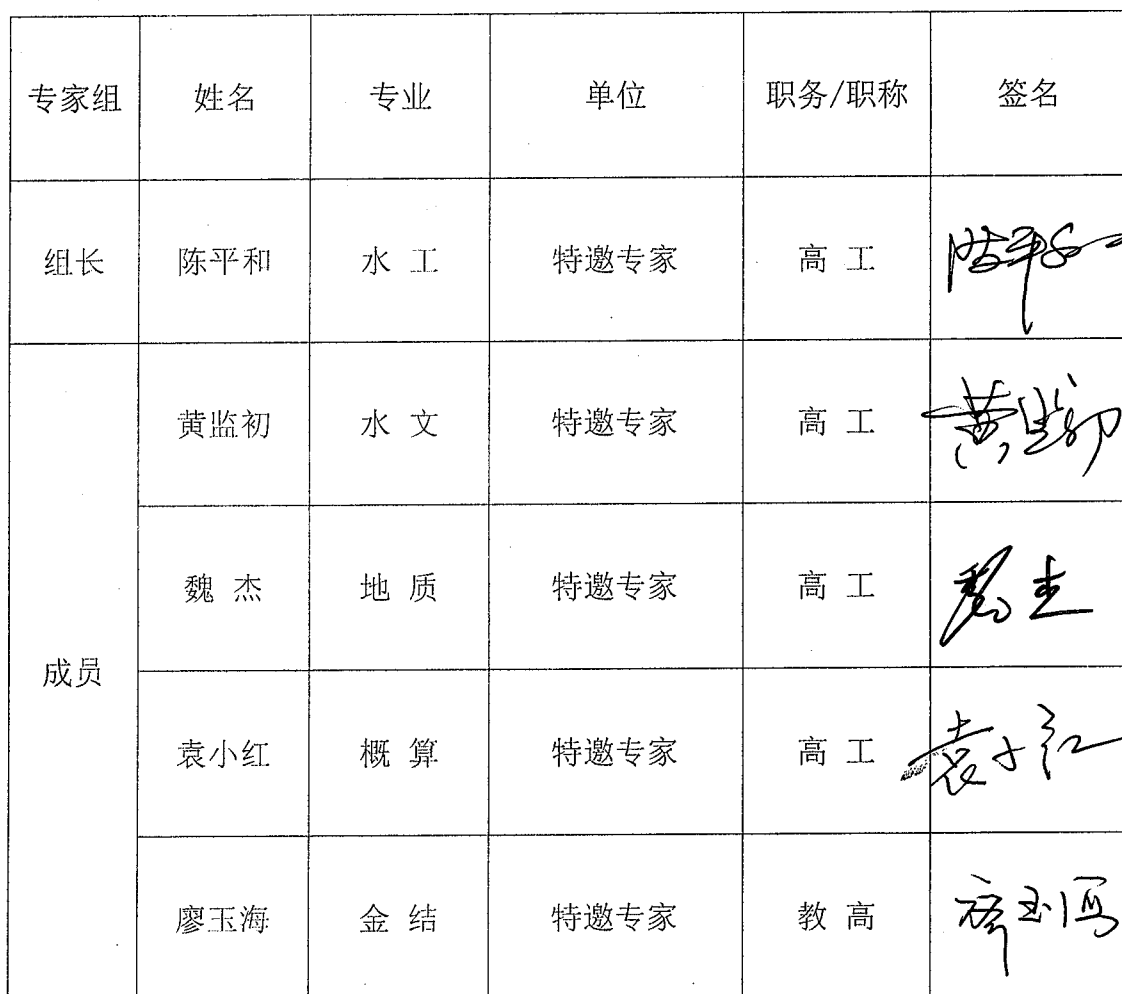 专家组 姓名 专业 单位 职务/职称 签名
组长 陈平和 水 工 特邀专家 高 工 陈平和
黄监初 水 文 特邀专家 高 工 黄监初
魏 杰 地 质 特邀专家 高 工 魏杰
成员
袁小红 概 算 特邀专家 高 工 袁小红
廖玉海 金 结 特邀专家 教 高 廖玉海